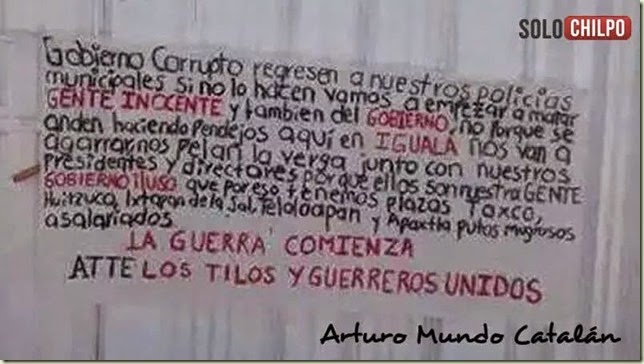 SOLO CHILPO
Gobierno Corrupto regresen a nuestros policias
municipales si no lo hacen vamos a empezar a matar
GENTE INOCENTE y tambien del GOBIERNO, no porque se
anden haciendo pendejos aquí en IGUALA nos van a
agarrarnos pelan la verga junto con nuestros
Presidentes y directores porque ellos son nuestra GENTE
GOBIERNO ILUSO que por eso tenemos plazas Taxco,
Huitzuco, Ixtapan de la Sal, Teloloapan y Apaxtla putos mugrosos
asalariados
LA GUERRA COMIENZA
ATTE LOS TILOS Y GUERREROS UNIDOS
Arturo Mundo Catalán